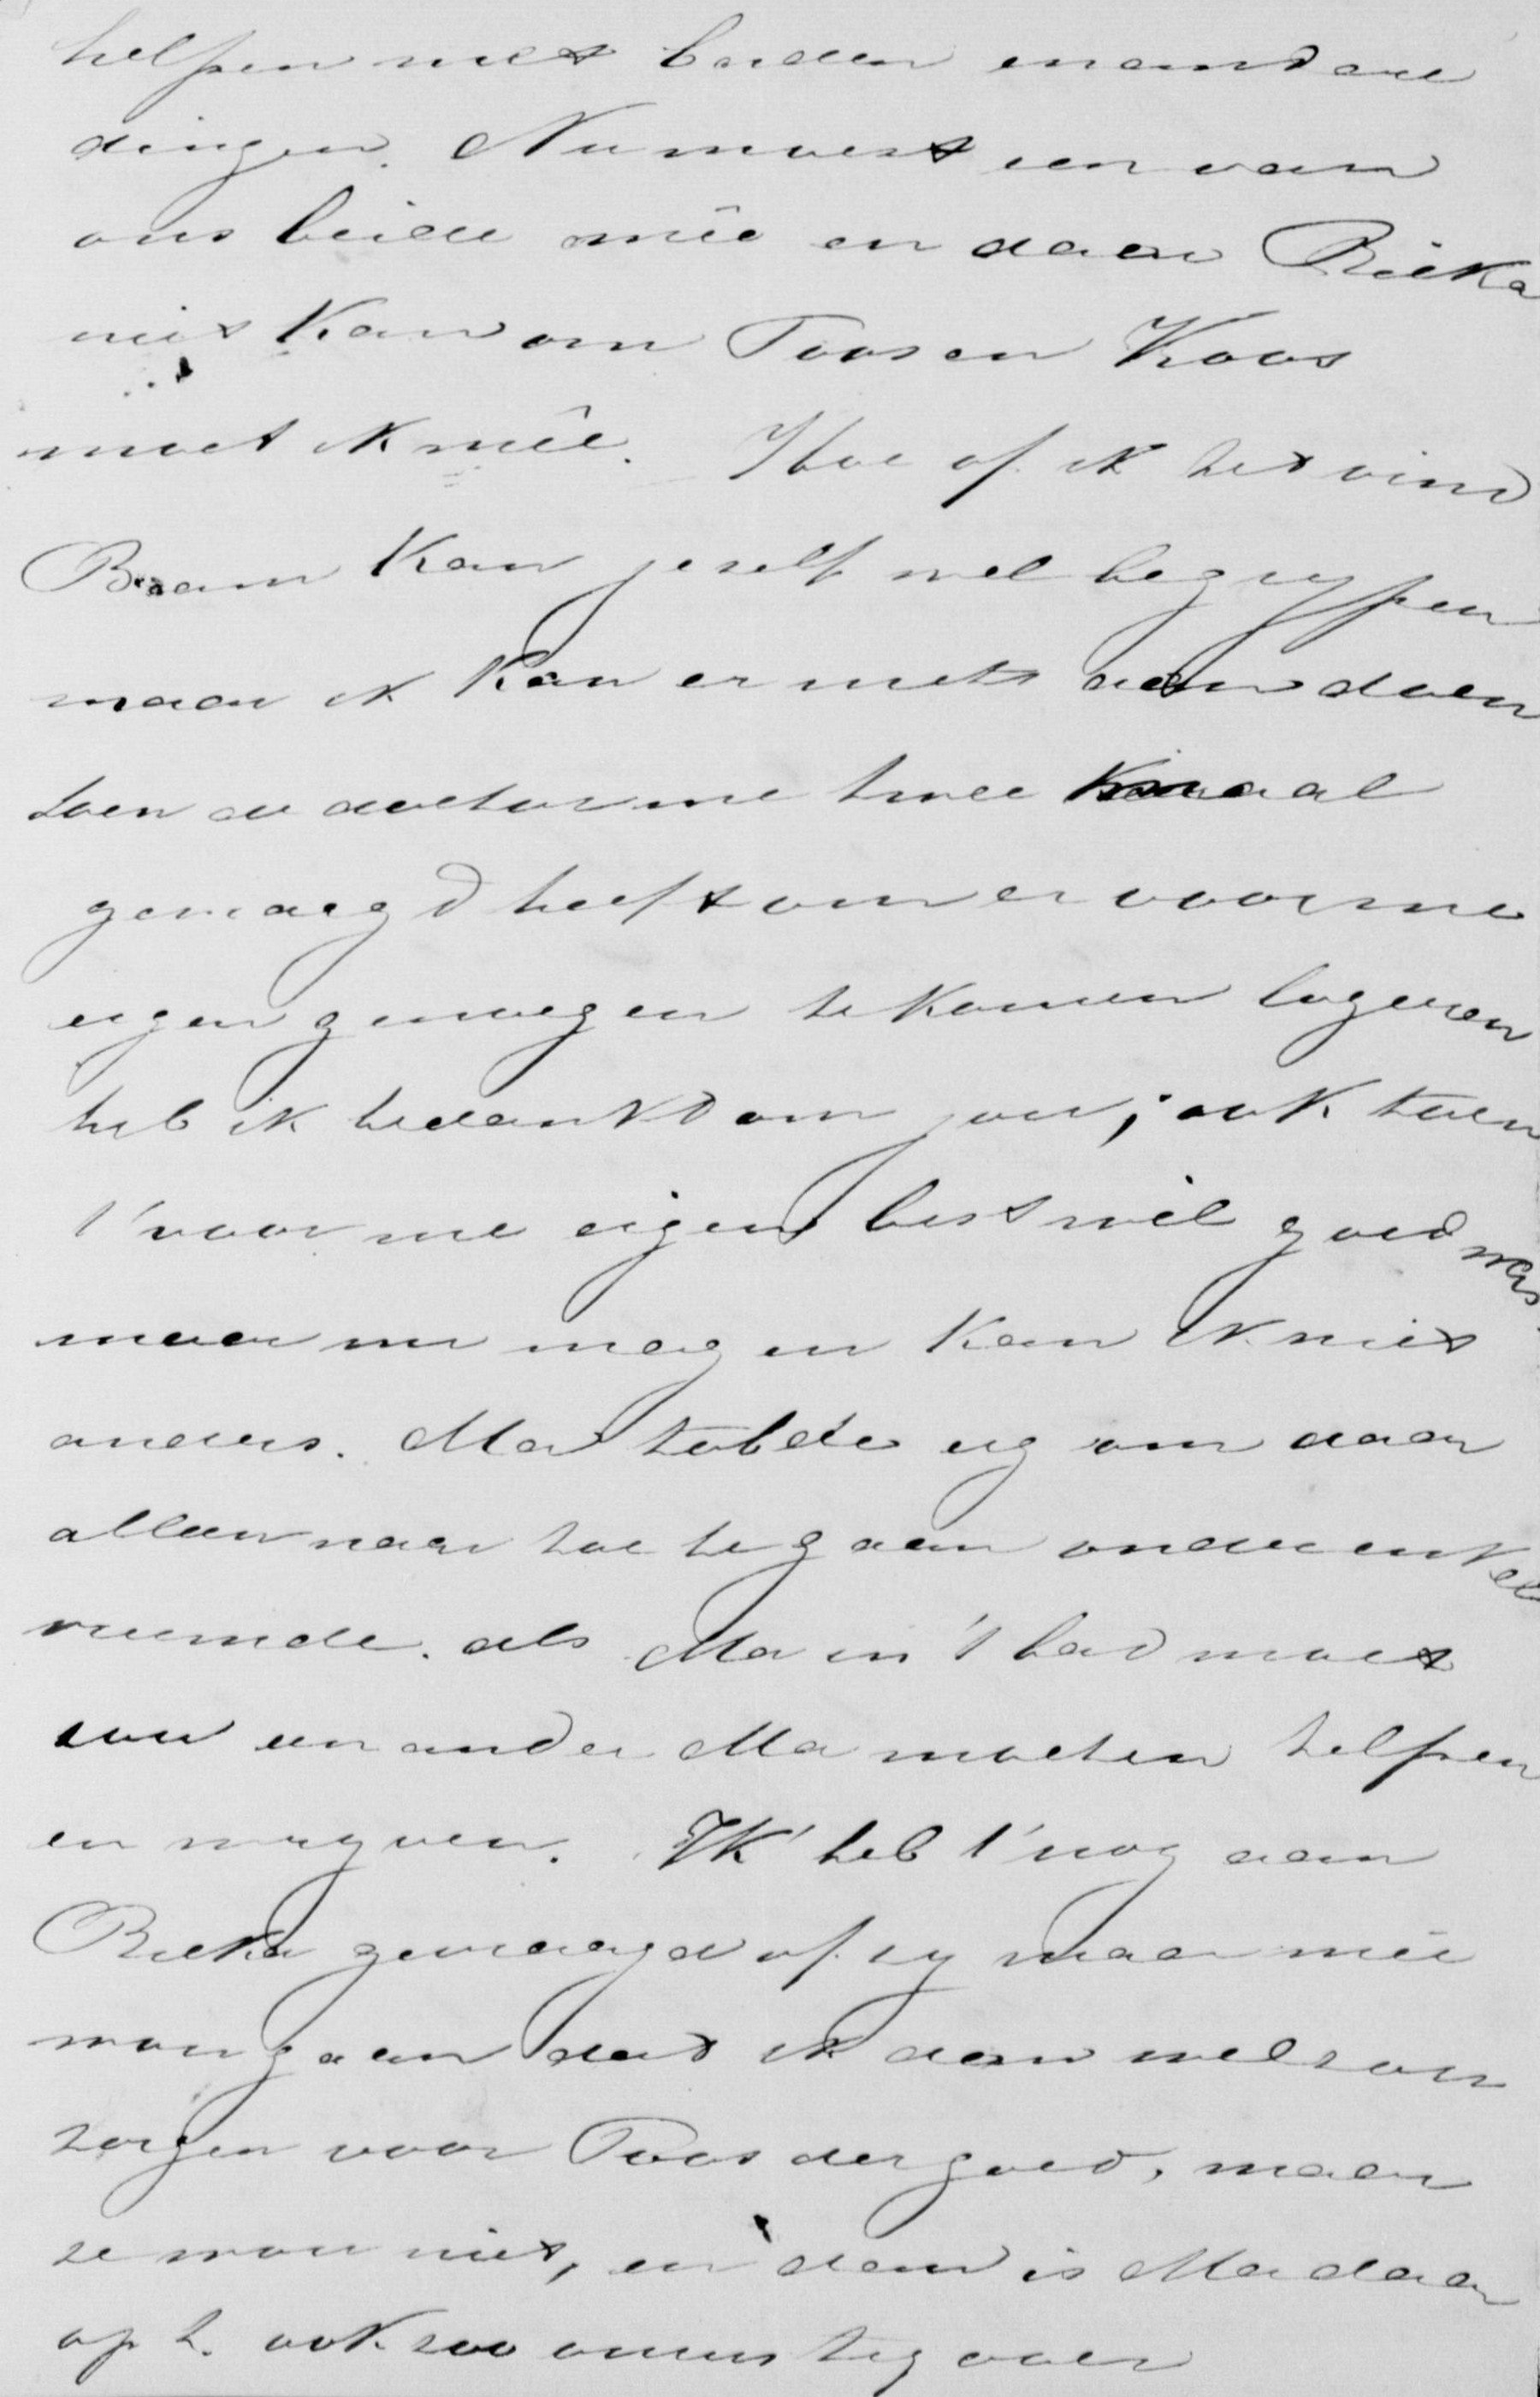 helpen met baden en andere
dingen. Nu moest een van
ons beide mêe en daar Rieka
niet kan om Toos en Koos
moet ik mêe. Hoe of ik het vind
Braam kan jeself wel begrypen
maar ik kan er niets aan doen
toen de doctor me twee maal
gevraagd heeft om er voor me
eigen genoegen te komen logeeren
heb ik bedankt om jou; ook toen
t'voor me eigen bestwil goed was
maar nu mag en kan ik niet
anders. Ma tobde erg om daar
alleen naar toe te gaan onder enkel
vreemde. als Ma in 't bad moet
sou een ander Ma moeten helpen
en wryven. Ik heb t'nog aan
Rieka gevraagd of sy maar mêe
wou gaan dat ik dan wel sou
sorgen voor Toos der goed, maar
se wou niet, en dan is Ma daar
op t. ook soo omens tegover